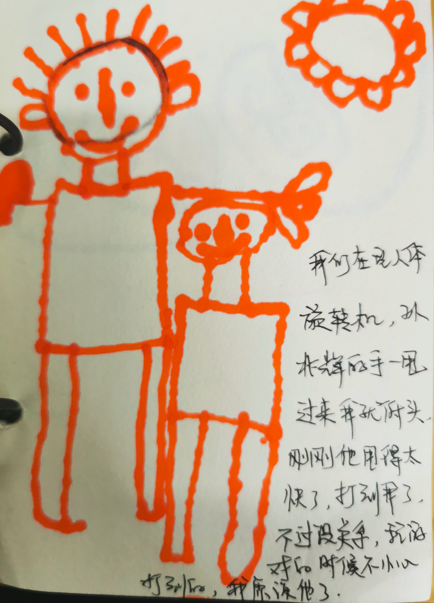 我们在玩人体
旋转机，孙
兆辉的手一甩
过来我就附头.
刚刚他甩得太
快了，打到我了.
不过没关系，玩游
戏的时候不小心
打到的，我原谅他了.